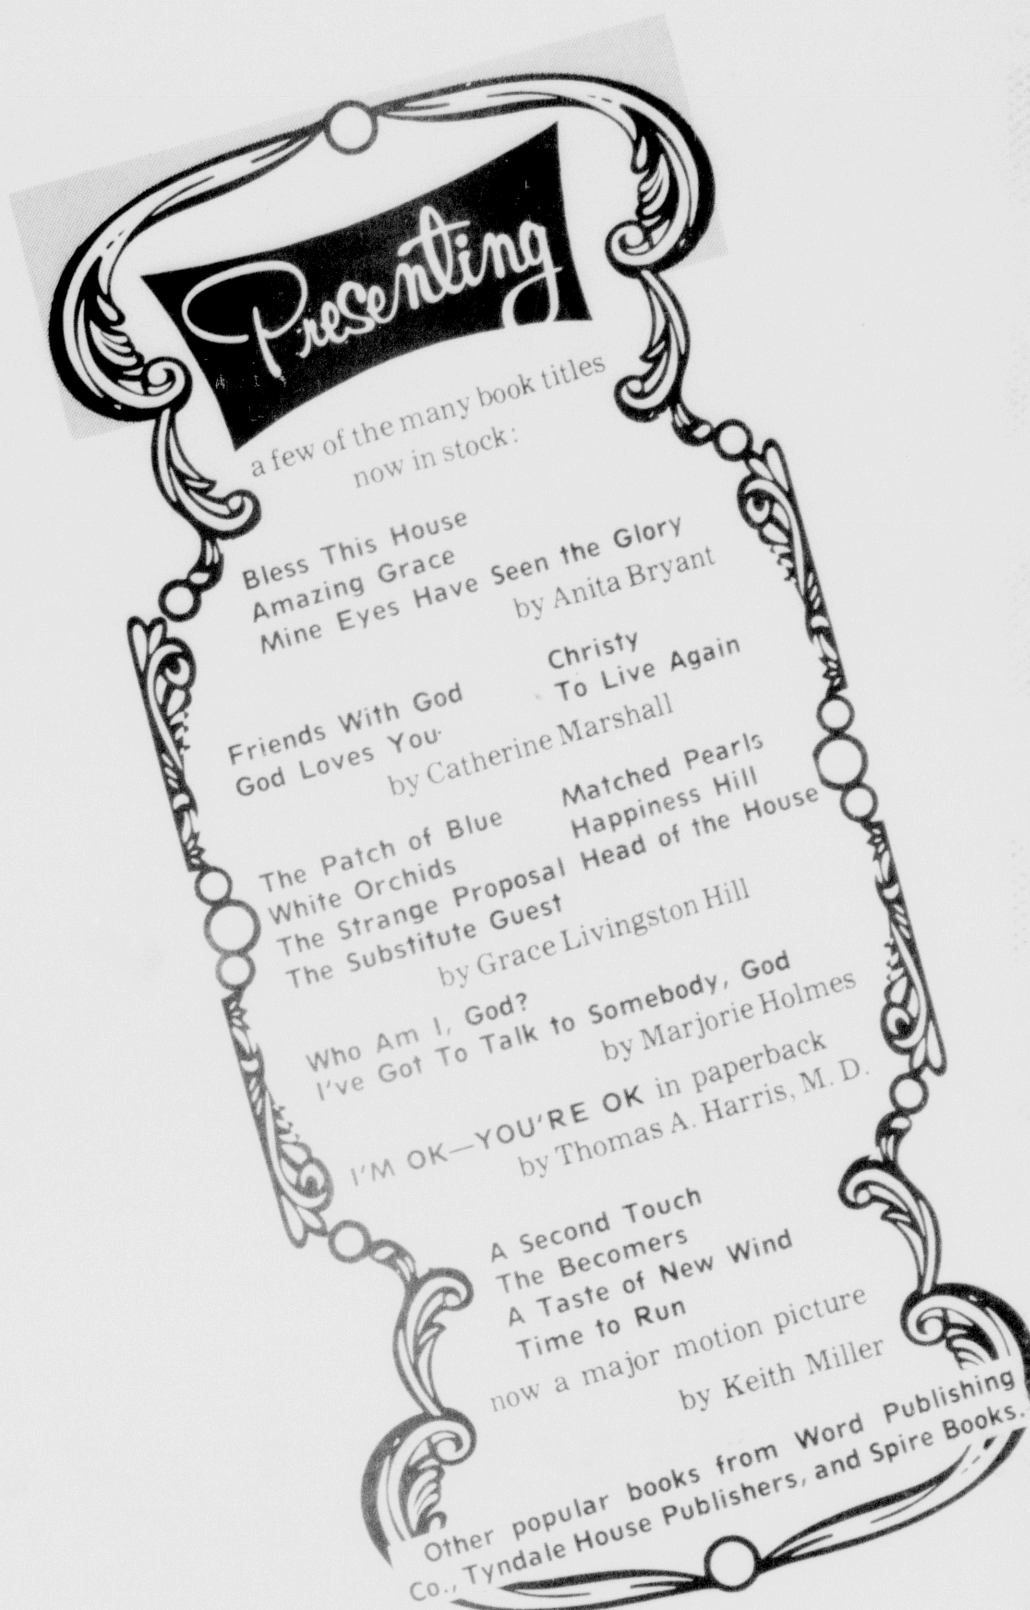 Presenting
a few of the many book titles
now in stock:
Bless This House
Amazing Grace
Mine Eyes Have Seen the Glory
by Anita Bryant
Christy
To Live Again
Friends With God
God Loves You
by Catherine Marshall
Matched Pearls
Happiness Hill
The Patch of Blue
White Orchids
The Strange Proposal Head of the House
The Substitute Guest
by Grace Livingston Hill
Who Am I, God?
I've Got To Talk to Somebody, God
by Marjorie Holmes
I'M OK—YOU'RE OK in paperback
by Thomas A. Harris, M. D.
A Second Touch
The Becomers
A Taste of New Wind
Time to Run
now a major motion picture
by Keith Miller
Other popular books from Word Publishing
Co., Tyndale House Publishers, and Spire Books.